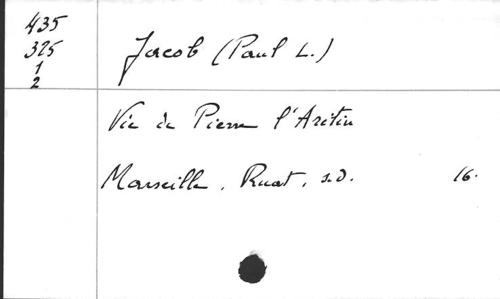 435
325
1
2
Jacob (Paul L.)
Vie de Pierre l'Arétin
Marseille, Ruat, s.d. 16.